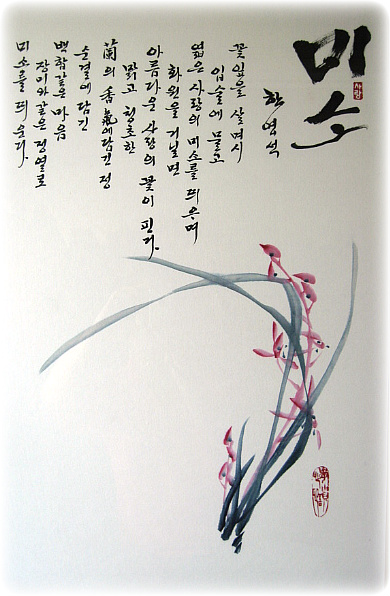 미소
사랑
꽃잎을 살며시
입술에 물고
엷은 사랑의 미소를 띄우며
화원을 거닐면
아름다운 사랑의 꽃이 핀다.
맑고 청초한
蘭의 香氣에 담긴 정
순결에 담긴
백합같은 마음
장미와 같은 정열로
미소를 띄운다.